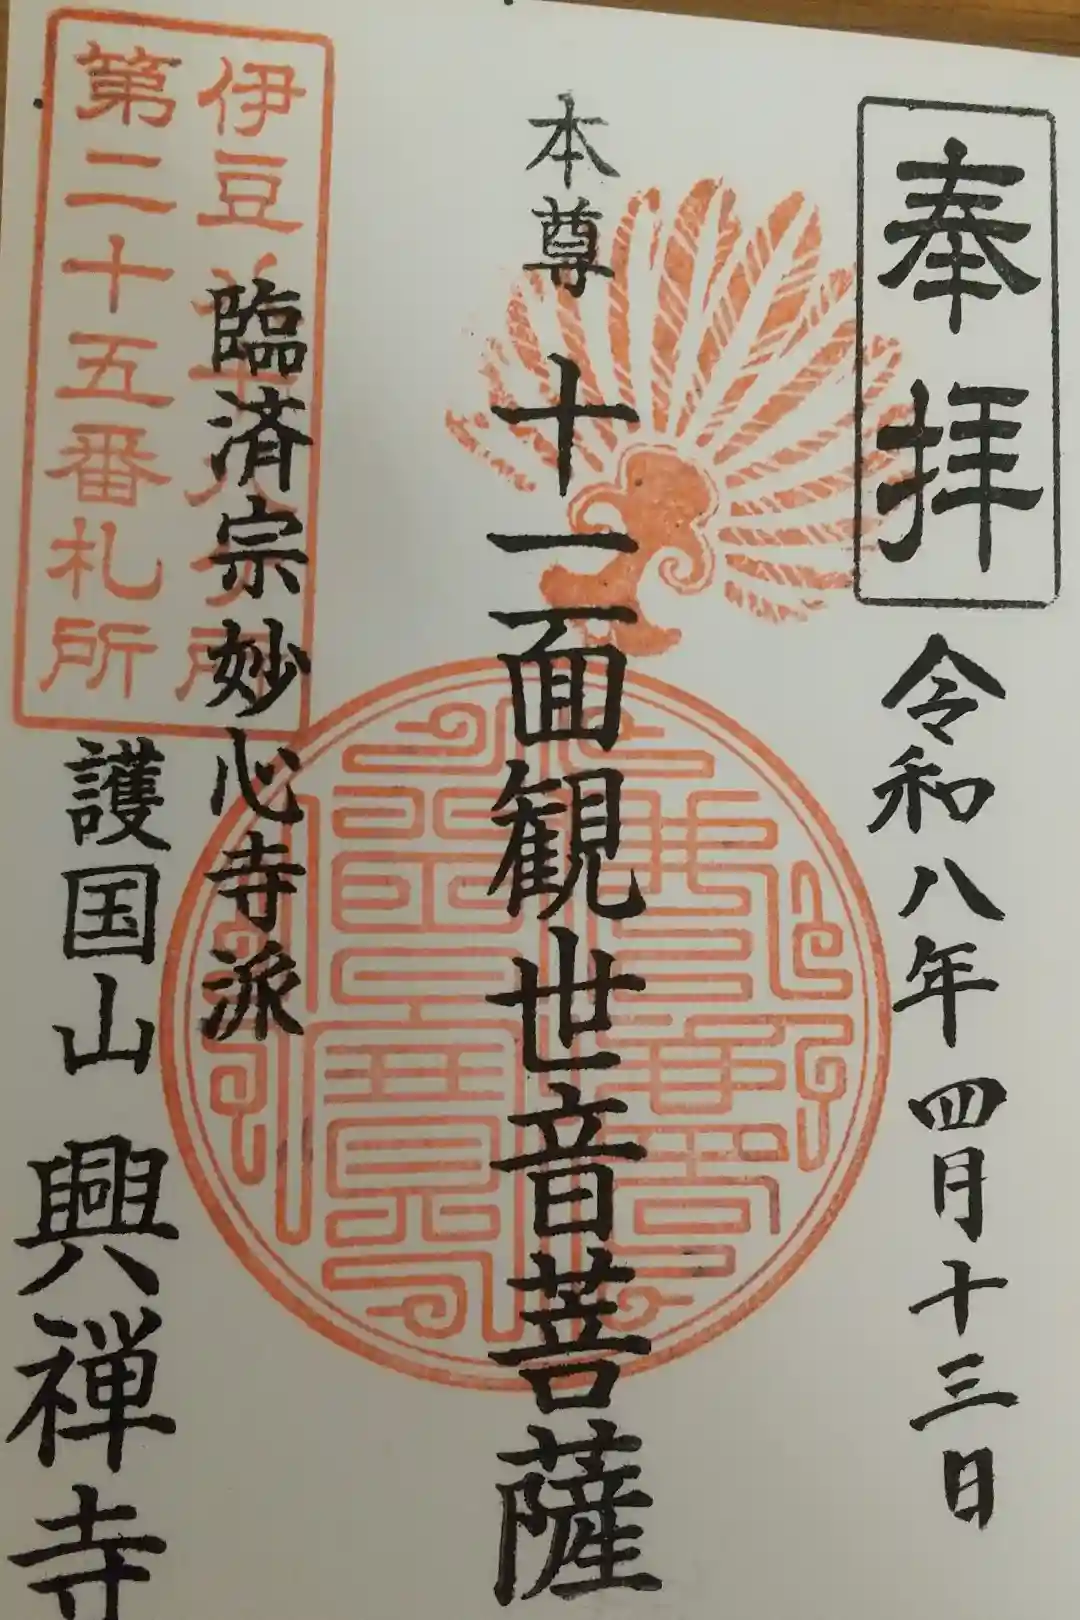 奉拝
令和八年四月十三日
本尊 十一面観世音菩薩
伊豆
第二十五番札所
臨済宗妙心寺派
護国山 興禅寺